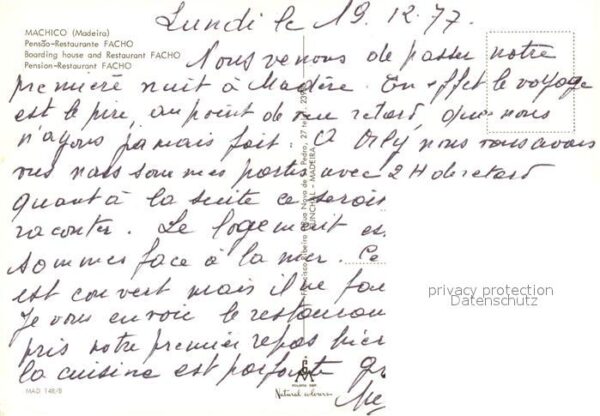 Lundi le 19.12.77.
MACHICO (Madeira)
Pensão-Restaurante FACHO
Boarding house and Restaurant FACHO
Pension-Restaurant FACHO
Nous venons de passer notre
première nuit à Madère. En effet le voyage
est le pire, au point de vue retard, que nous
n'ayons jamais fait. A Orly nous
nous sommes partis avec 2H de retard
quant à la suite ce serait
raconter. Le logement es
sommes face à la mer. Ce
est couvert mais il ne fai
Je vous envoie le restauran
pris notre premier repas hier
la cuisine est parfaite
MAD 148/B
Natural colours
FUNCHAL - MADEIRA
privacy protection
Datenschutz